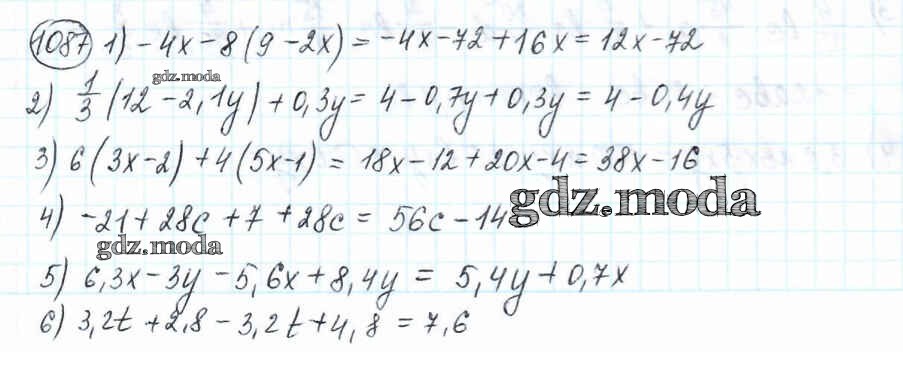 1087 1) -4x-8(9-2x)=-4x-72+16x=12x-72
gdz.moda
2) 1/3 (12-2,1y)+0,3y=4-0,7y+0,3y=4-0,4y
3) 6(3x-2)+4(5x-1)=18x-12+20x-4=38x-16
4) -21+28c+7+28c=56c-14 gdz.moda
gdz.moda
5) 6,3x-3y-5,6x+8,4y=5,4y+0,7x
6) 3,2t+2,8-3,2t+4,8=7,6